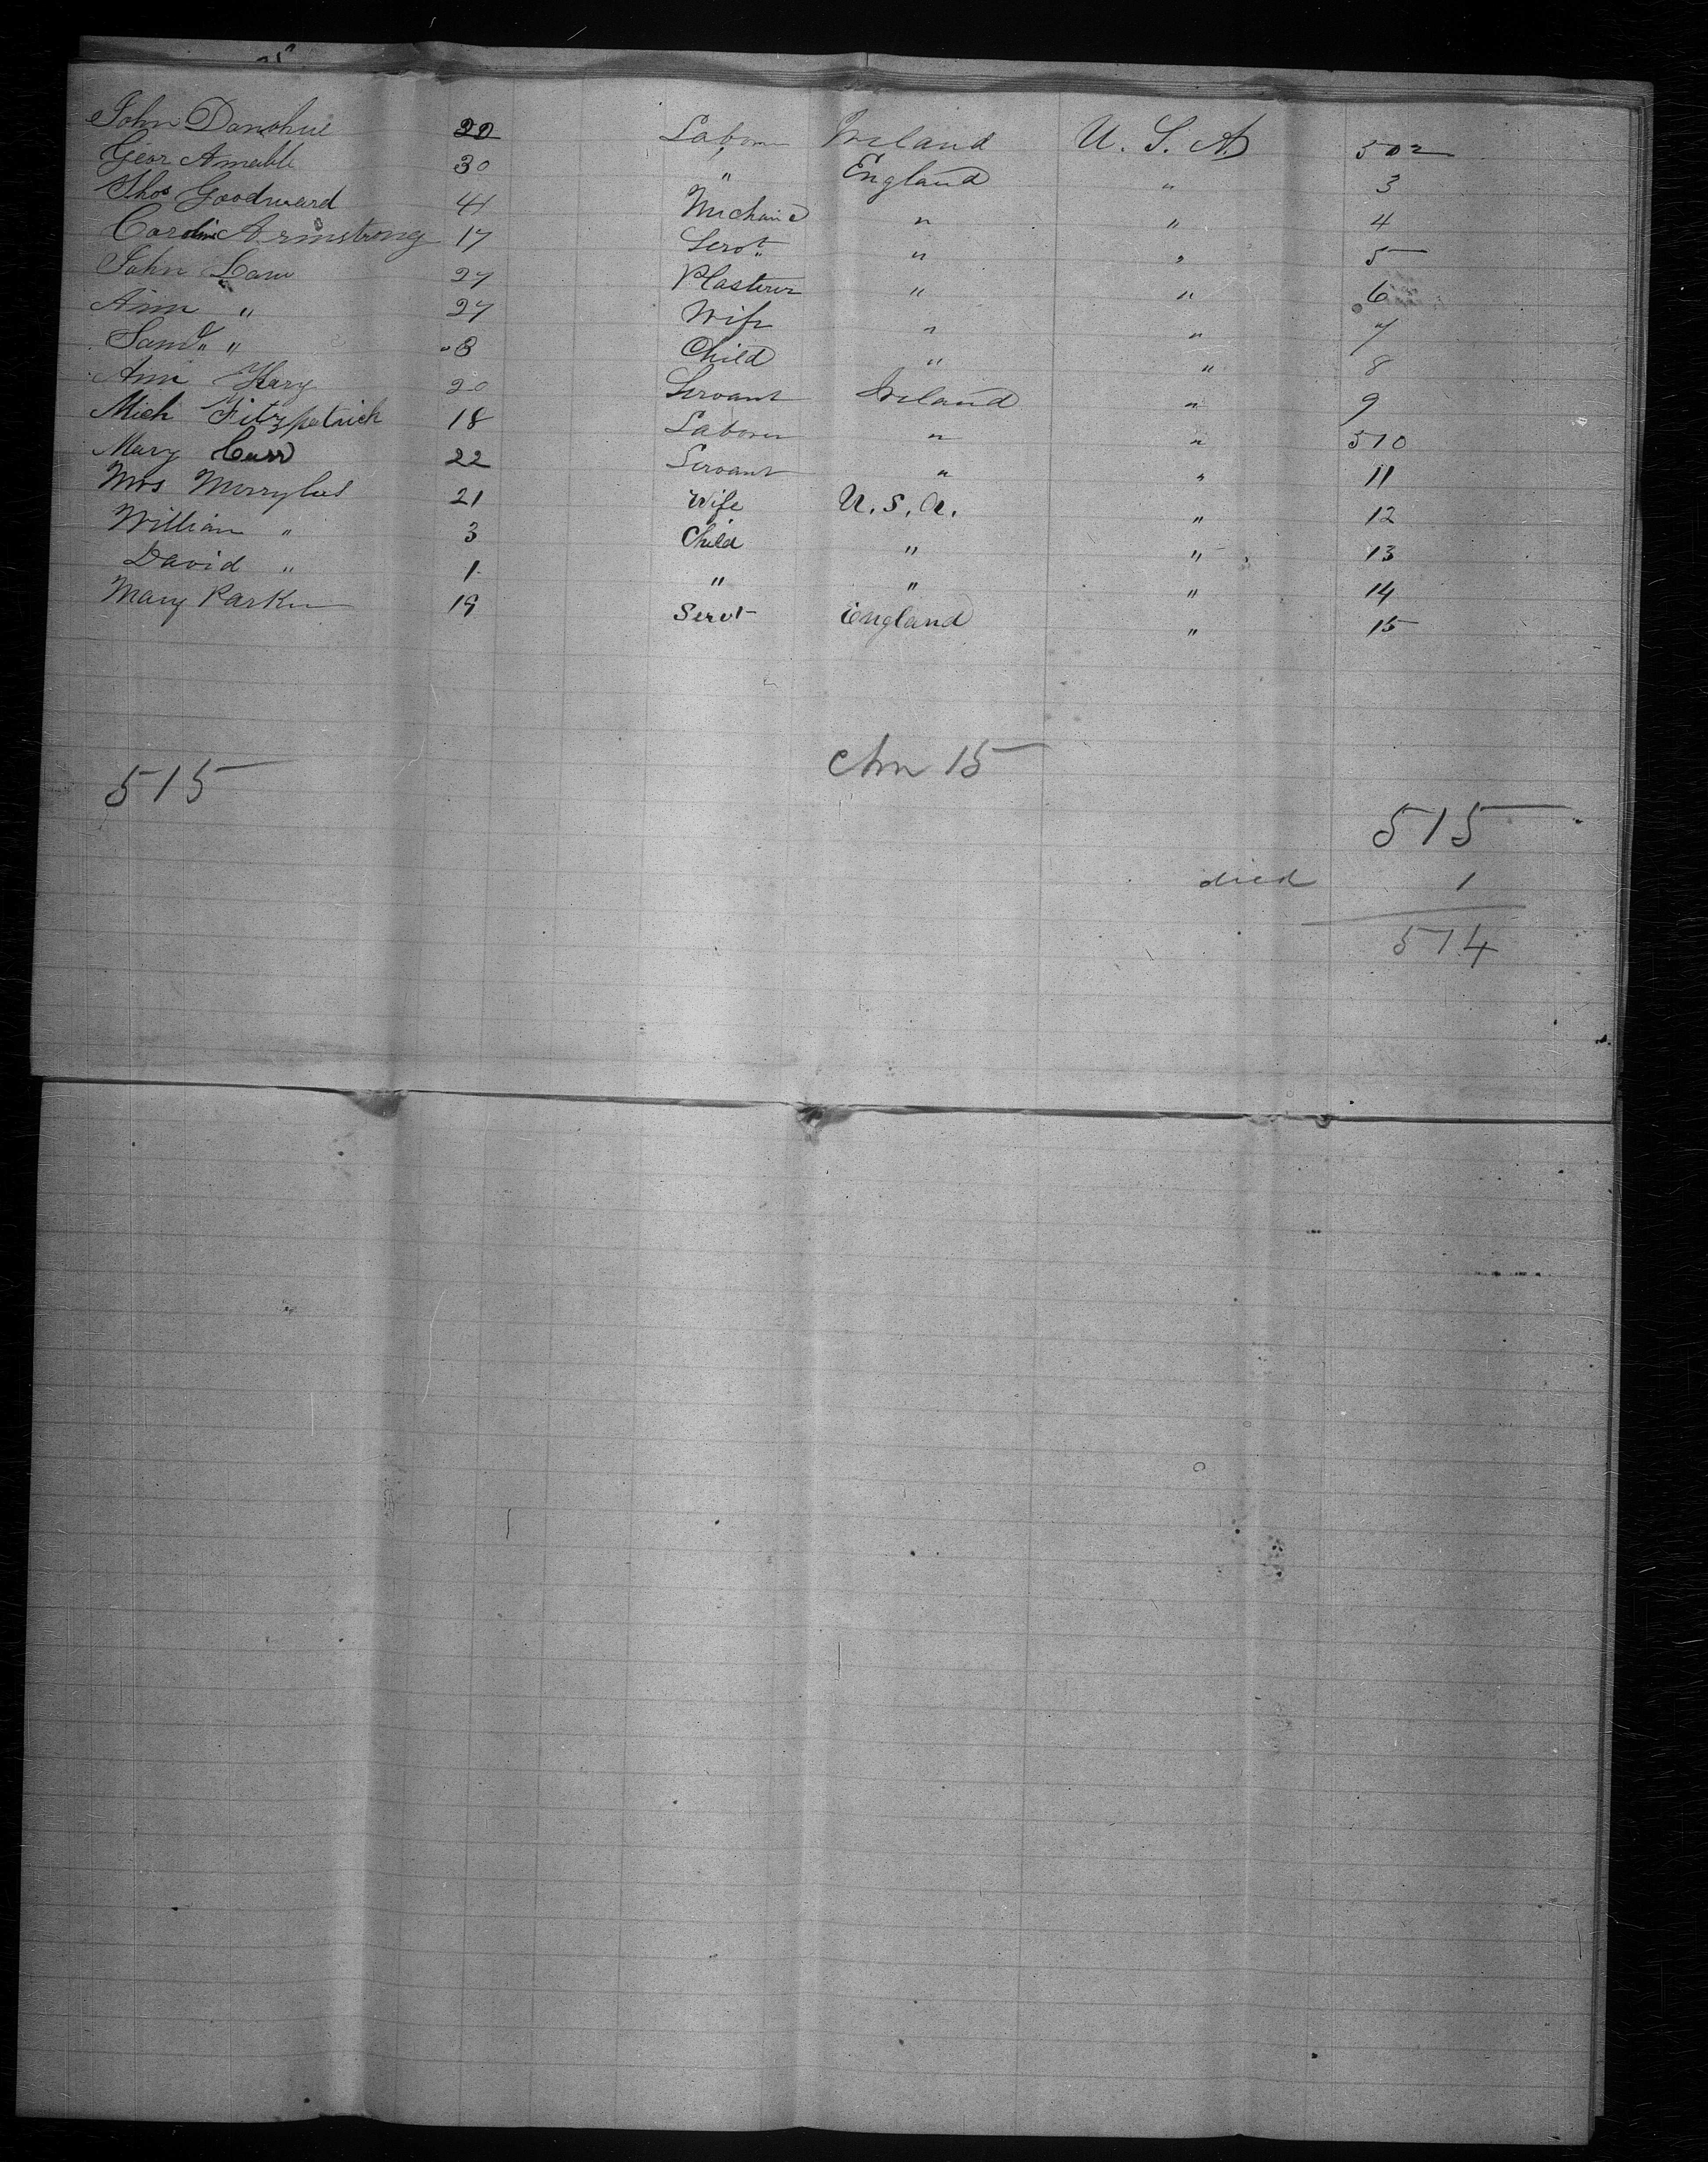 John Donohue 22 Laborer Ireland U. S. A. 502
Geor Ameable 30 " England " 3
Thos Goodward 41 Mechanic " " 4
Caroline Armstrong 17 Servt " " 5
John Law 27 Plasterer " " 6
Ann " 27 Wife " " 7
Saml " 8 Child " " 8
Ann Hary 20 Servant Ireland " 9
Mich Fitzpatrick 18 Laborer " " 510
Mary Carr 22 Servant " " 11
Mrs 21 Wife U.S.A. " 12
William " 3 Child " " 13
David " 1 " " " 14
Mary Parker 19 Servt England " 15
515 Am 15
515
died 1
514